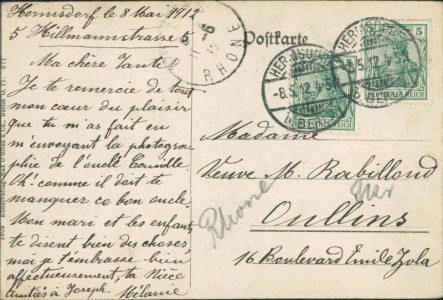 Hermsdorf le 8 Mai 1912
5 Hillmannstrasse 5
Ma chère Tante!
Je te remercie de tout
mon cœur du plaisir
que tu m'as fait en
m'envoyant la photogra-
phie de l'oncle Camille.
Oh! comme il doit te
manquer ce bon oncle.
Mon mari et les enfants
te disent bien des choses
moi je t'embrasse bien
affectueusement, ta Nièce
Amitiés à Joseph. Mélanie
RHONE
Postkarte
HERMSDORF
-8.5.12.4-5
b. BERLIN
HERMSDORF
8.5.12.4-5
b. BERLIN
5
DEUTSCHES REICH
Madame
Veuve M. Rabilloud
Rhone
Oullins
16 Boulevard Emile Zola